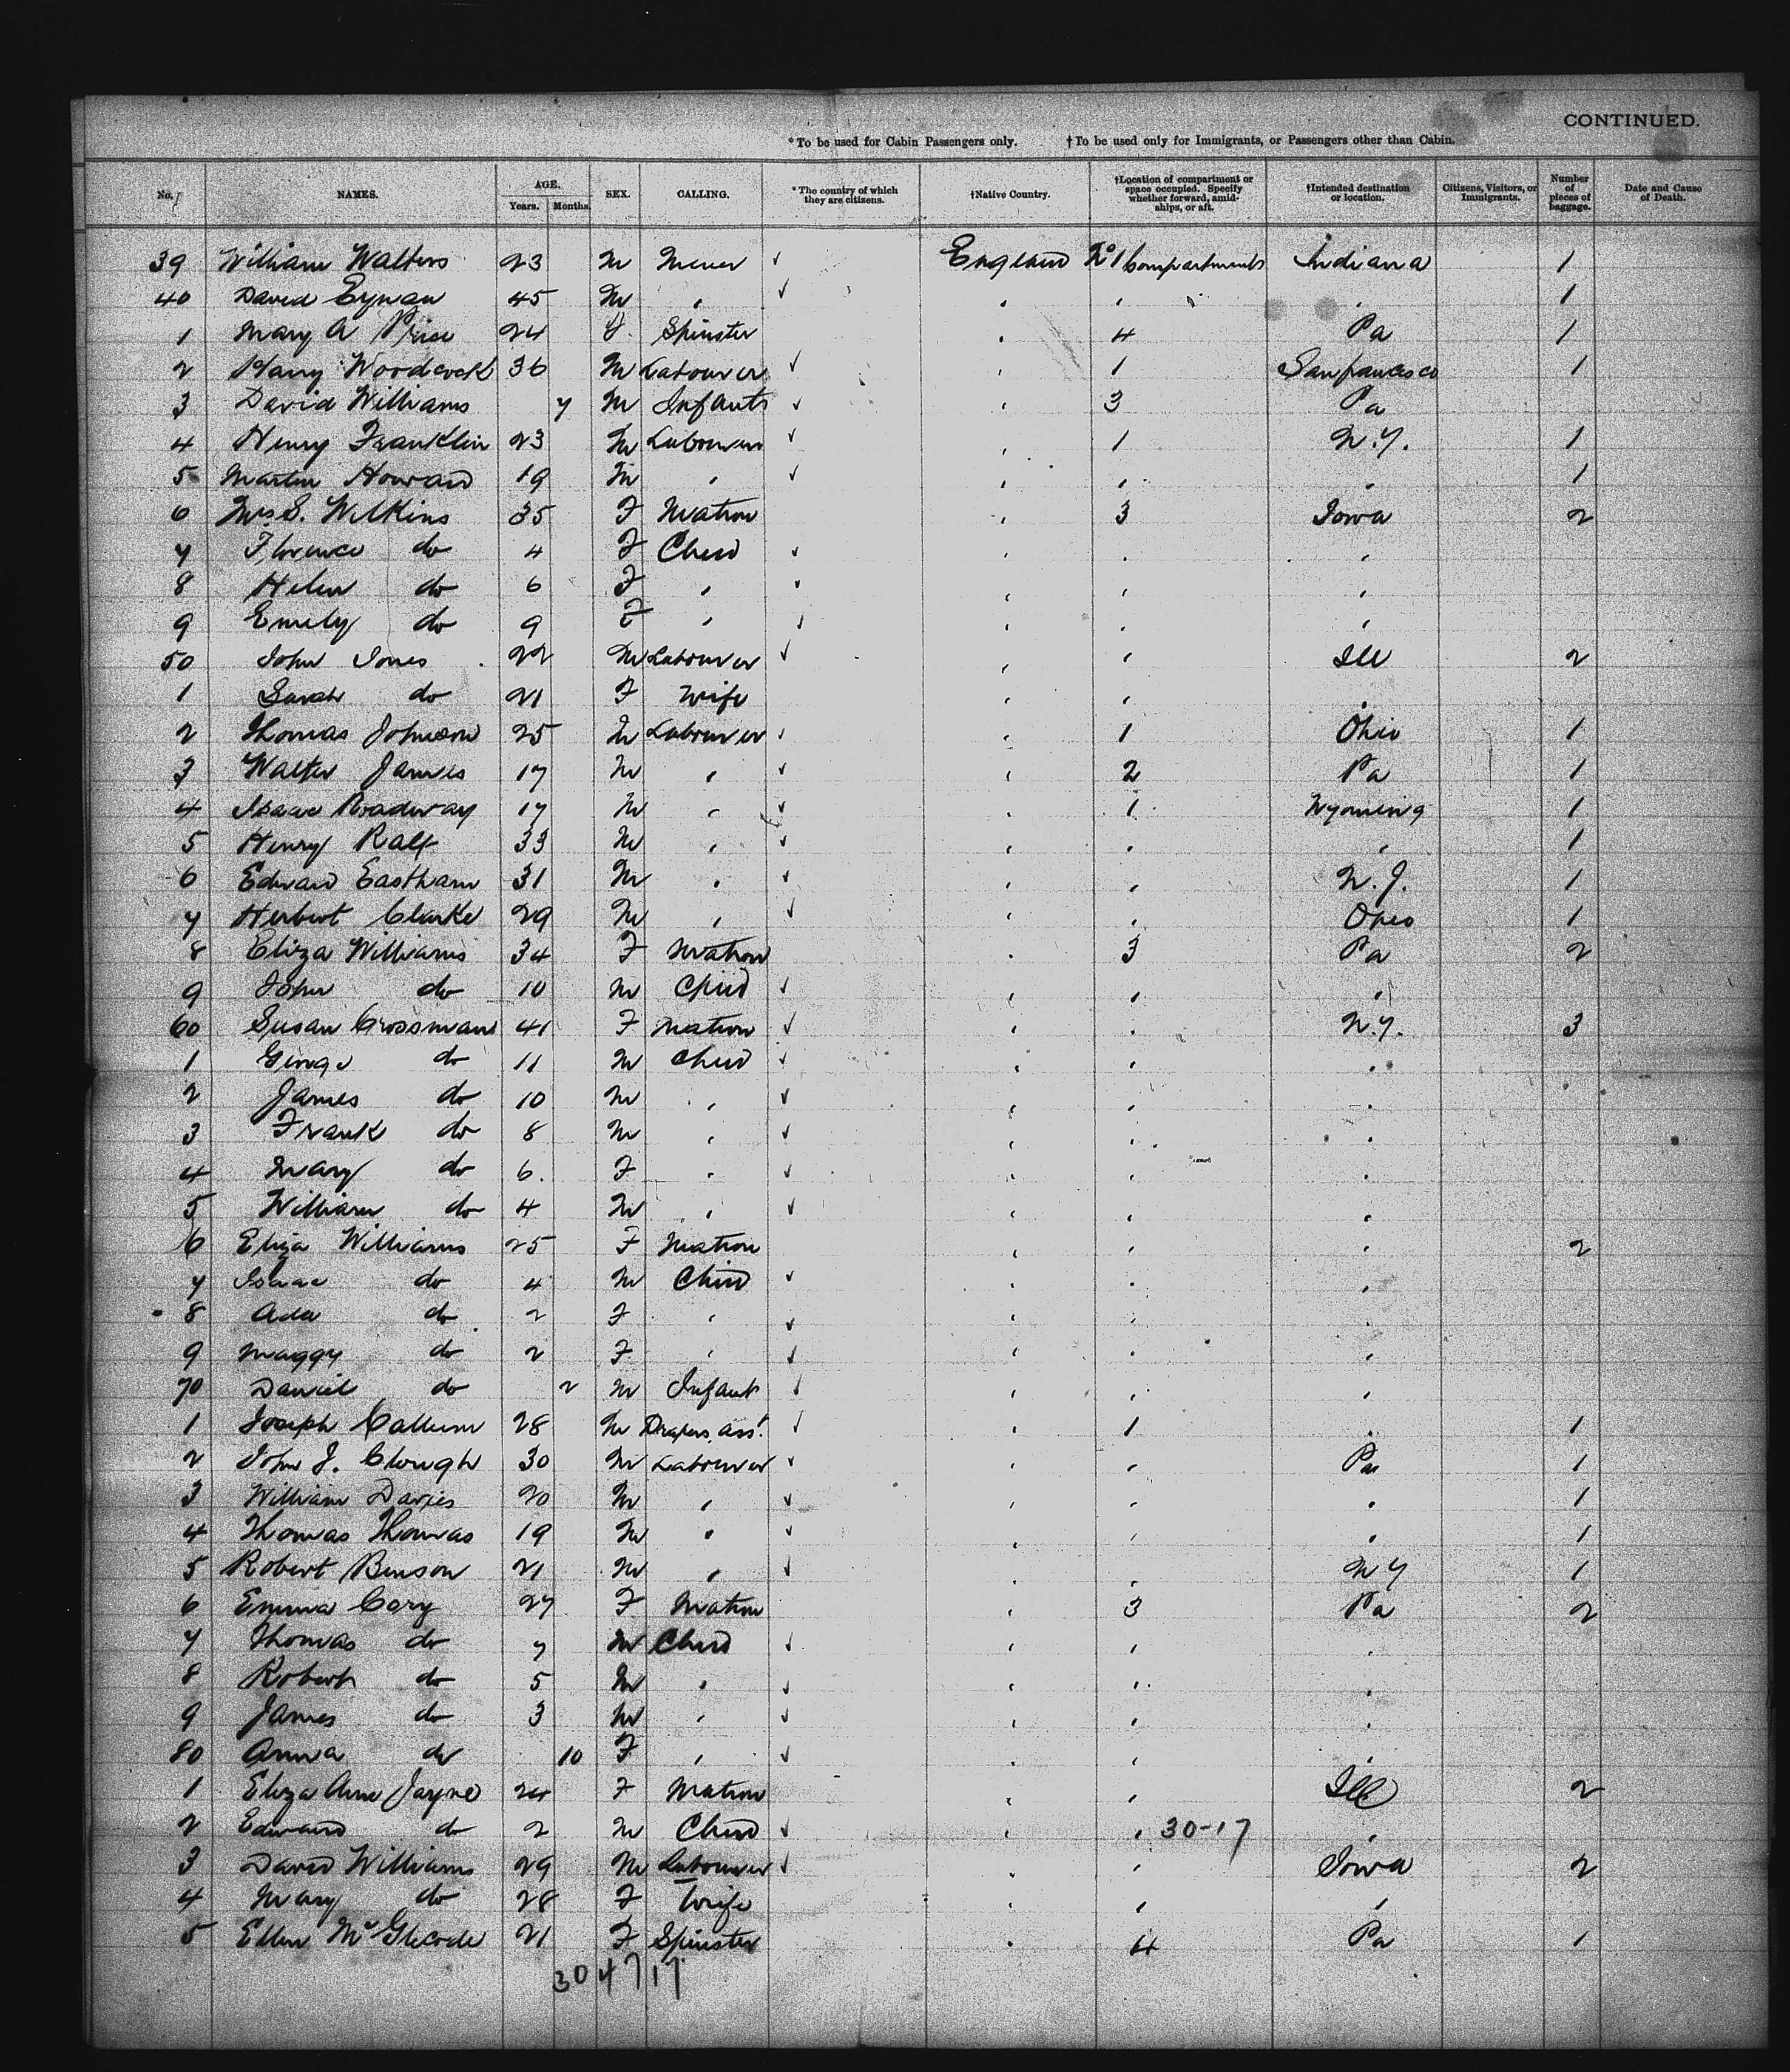 CONTINUED.
*To be used for Cabin Passengers only. †To be used only for Immigrants, or Passengers other than Cabin.
No. NAMES. AGE. Years. Months. SEX. CALLING. *The country of which they are citizens. †Native Country. †Location of compartment or space occupied. Specify whether forward, amidships, or aft. †Intended destination or location. Citizens, Visitors, or Immigrants. Number of pieces of baggage. Date and Cause of Death.
39 William Walters 23 M Miner ✓ England No 1 Compartments Indiana 1
40 David Eynan 45 M " ✓ " " " 1
1 Mary A Price 24 F Spinster " 4 Pa 1
2 Harry Woodcock 36 M Labourer ✓ " 1 Sanfrancisco 1
3 David Williams 7 M Infant ✓ " 3 Pa
4 Henry Franklin 23 M Labourer ✓ " 1 N.Y. 1
5 Martin Howard 19 M " ✓ " " " 1
6 Mrs S. Wilkins 35 F Matron " 3 Iowa 2
7 Florence do 4 F Child ✓ " " "
8 Helen do 6 F " ✓ " " "
9 Emily do 9 F " ✓ " " "
50 John Jones 22 M Labourer ✓ " " Ill 2
1 Sarah do 21 F Wife " " "
2 Thomas Johnson 25 M Labourer ✓ " 1 Ohio 1
3 Walter James 17 M " ✓ " 2 Pa 1
4 Isaac Roadway 17 M " ✓ " 1 Wyoming 1
5 Henry Ralf 33 M " ✓ " " " 1
6 Edward Eastham 31 M " ✓ " " N.J. 1
7 Herbert Clarke 29 M " ✓ " " Ohio 1
8 Eliza Williams 34 F Matron " 3 Pa 2
9 John do 10 M Child ✓ " " "
60 Susan Crossman 41 F Matron ✓ " " N.Y. 3
1 George do 11 M Child ✓ " " "
2 James do 10 M " ✓ " " "
3 Frank do 8 M " ✓ " " "
4 Mary do 6 F " ✓ " " "
5 William do 4 M " ✓ " " "
6 Eliza Williams 25 F Matron " " " 2
7 Isaac do 4 M Child ✓ " " "
8 Ada do 2 F " ✓ " " "
9 Maggy do 2 F " ✓ " " "
70 Daniel do 2 M Infant ✓ " " "
1 Joseph Callum 28 M Drapers Asst ✓ " 1 " 1
2 John J. Clough 30 M Labourer ✓ " " Pa 1
3 William Davies 20 M " ✓ " " " 1
4 Thomas Thomas 19 M " ✓ " " " 1
5 Robert Benson 21 M " ✓ " " N Y 1
6 Emma Cory 27 F Matron " 3 Pa 2
7 Thomas do 7 M Child ✓ " " "
8 Robert do 5 M " ✓ " " "
9 James do 3 M " ✓ " " "
80 Anna do 10 F " ✓ " " "
1 Eliza Ann Jayne 24 F Matron " " Ill 2
2 Edward do 2 M Child ✓ " " 30-17 "
3 David Williams 29 M Labourer ✓ " " Iowa 2
4 Mary do 28 F Wife " " "
5 Ellen 21 F Spinster " 4 Pa 1
30 4 7 17